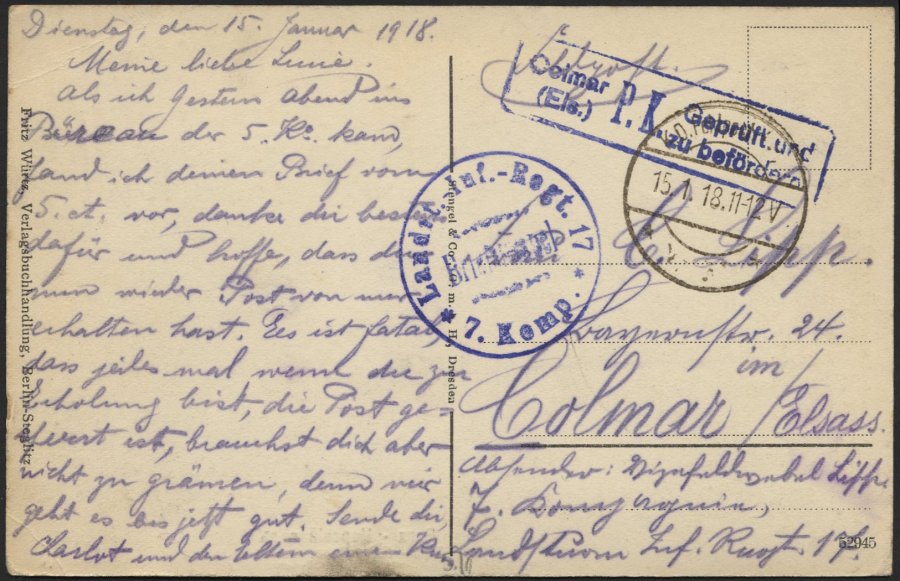 Dienstag, den 15. Januar 1918.
Meine liebe
Als ich gestern abend ins
Büreau der 5. Ko. kam,
fand ich deinen Brief vom
5. ct. vor, danke dir bestens
dafür und hoffe, dass du
nun wieder Post von mir
erhalten hast. Es ist fatal,
dass jedes mal wenn du zur
Erholung bist, die Post ge-
sperrt ist, brauchst dich aber
nicht zu grämen, denn mir
geht es bis jetzt gut. Sende dir,
und den Eltern einen
Fritz Würtz, Verlagsbuchhandlung, Berlin-Steglitz
Stengel & Co., G. m. b. H., Dresden
Feldpost.
Colmar
(Els.)
P.K.
Geprüft und
zu befördern
15.1.18.11-12V
Landst.-Inf.-Regt. 17
* 7. Komp. *
Lipp.
Bayernstr. 24.
im
Colmar / Elsass.
Absender: Vizefeldwebel
7. Kompagnie,
Landsturm Inf. Regt. 17.
52945